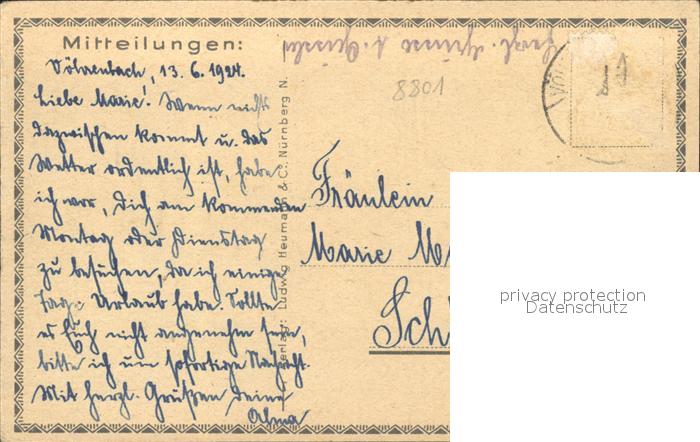 Mitteilungen:
Vöhrenbach, 13. 6. 1924.
Liebe Marie! Wenn nichts
dazwischen kommt u. das
Wetter ordentlich ist, habe
ich vor, Dich am kommenden
Montag oder Dienstag
zu besuchen, da ich einige
Tage Urlaub habe. Sollte
es Euch nicht angenehm sein,
bitte ich um sofortige Nachricht.
Mit herzl. Grüßen Deine
Alma
Herzl. Grüsse
8801
Verlag: Ludwig Heumann & Co. Nürnberg N.
Fräulein
Marie M
Sch
privacy protection
Datenschutz